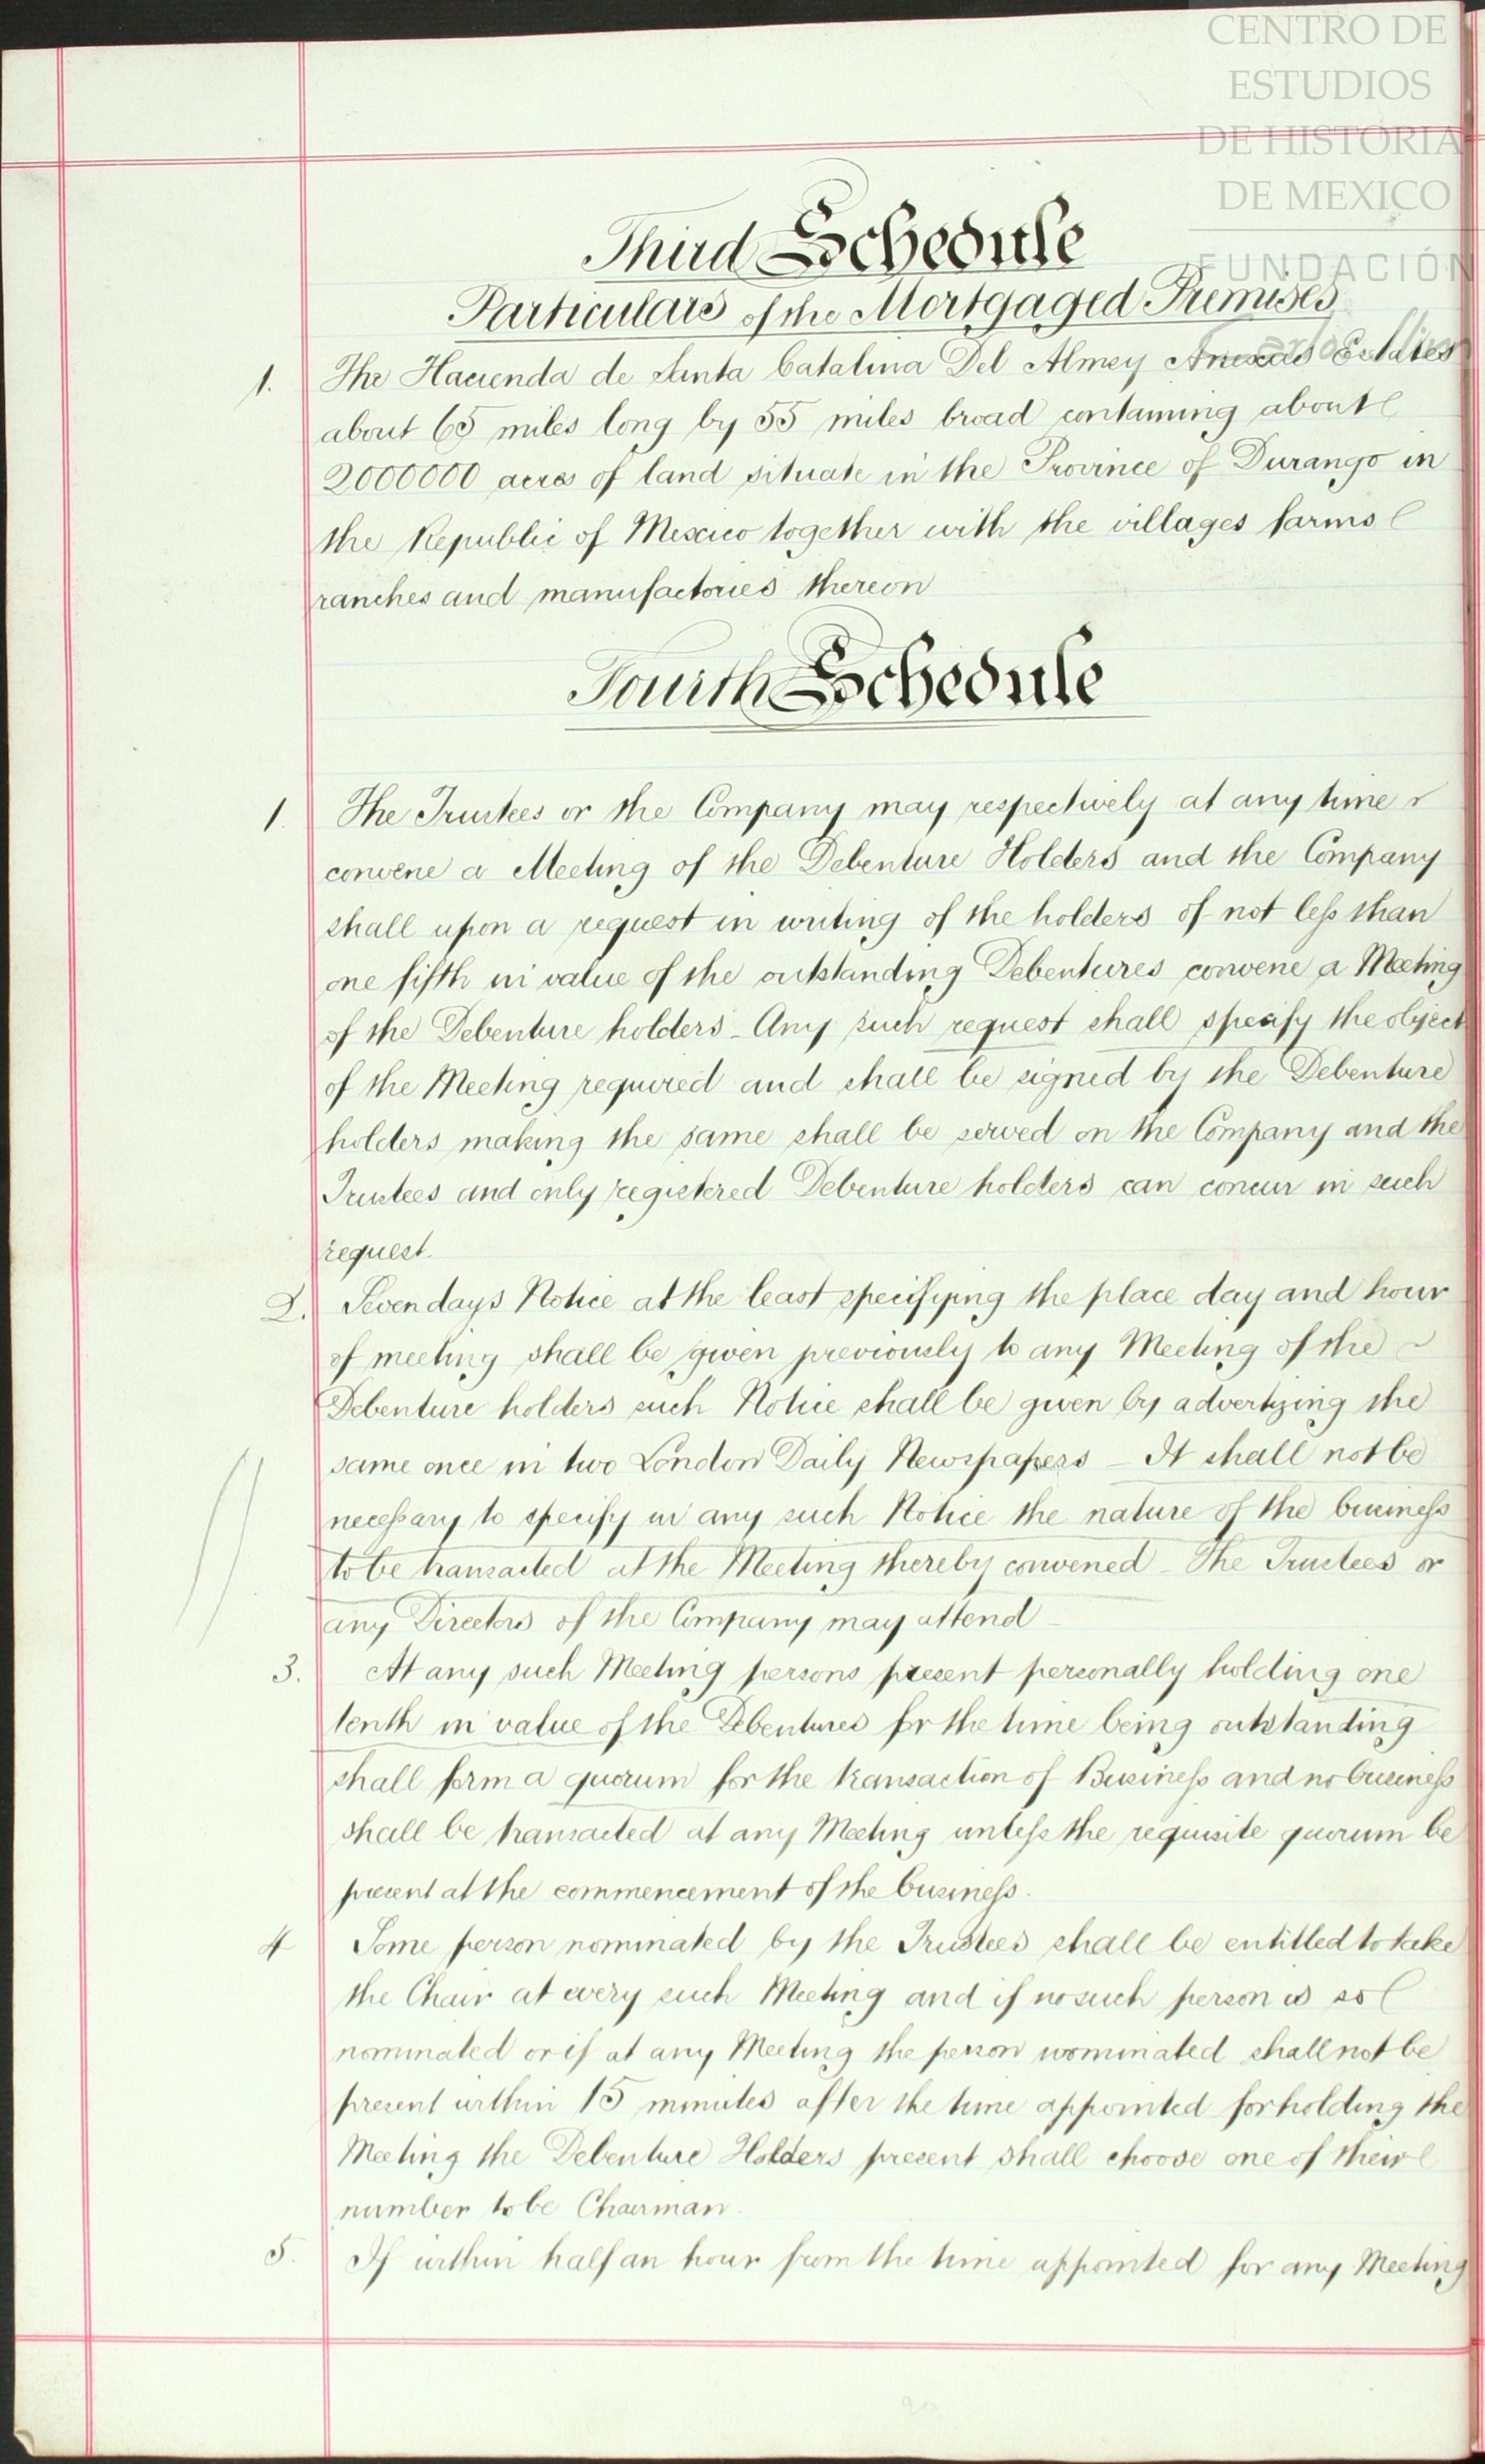 CENTRO DE
ESTUDIOS
DE HISTORIA
DE MEXICO
FUNDACIÓN
Third Schedule
Particulars of the Mortgaged Premises
1. The Hacienda de Santa Catalina Del Almey Anexas Estates
about 65 miles long by 55 miles broad containing about
2000000 acres of land situate in the Province of Durango in
the Republic of Mexico together with the villages farms
ranches and manufactories thereon
Fourth Schedule
1. The Trustees or the Company may respectively at any time
convene a Meeting of the Debenture Holders and the Company
shall upon a request in writing of the holders of not less than
one fifth in value of the outstanding Debentures convene a Meeting
of the Debenture holders - Any such request shall specify the object
of the Meeting required and shall be signed by the Debenture
holders making the same shall be served on the Company and the
Trustees and only registered Debenture holders can concur in such
request.
2. Seven days Notice at the least specifying the place day and hour
of meeting shall be given previously to any Meeting of the
Debenture holders such Notice shall be given by advertizing the
same once in two London Daily Newspapers - It shall not be
necessary to specify in any such Notice the nature of the business
to be transacted at the Meeting thereby convened - The Trustees or
any Directors of the Company may attend -
3. At any such Meeting persons present personally holding one
tenth in value of the Debentures for the time being outstanding
shall form a quorum for the transaction of Business and no business
shall be transacted at any Meeting unless the requisite quorum be
present at the commencement of the business.
4 Some person nominated by the Trustees shall be entitled to take
the Chair at every such Meeting and if no such person is so
nominated or if at any Meeting the person nominated shall not be
present within 15 minutes after the time appointed for holding the
Meeting the Debenture Holders present shall choose one of their
number to be Chairman.
5. If within half an hour from the time appointed for any Meeting